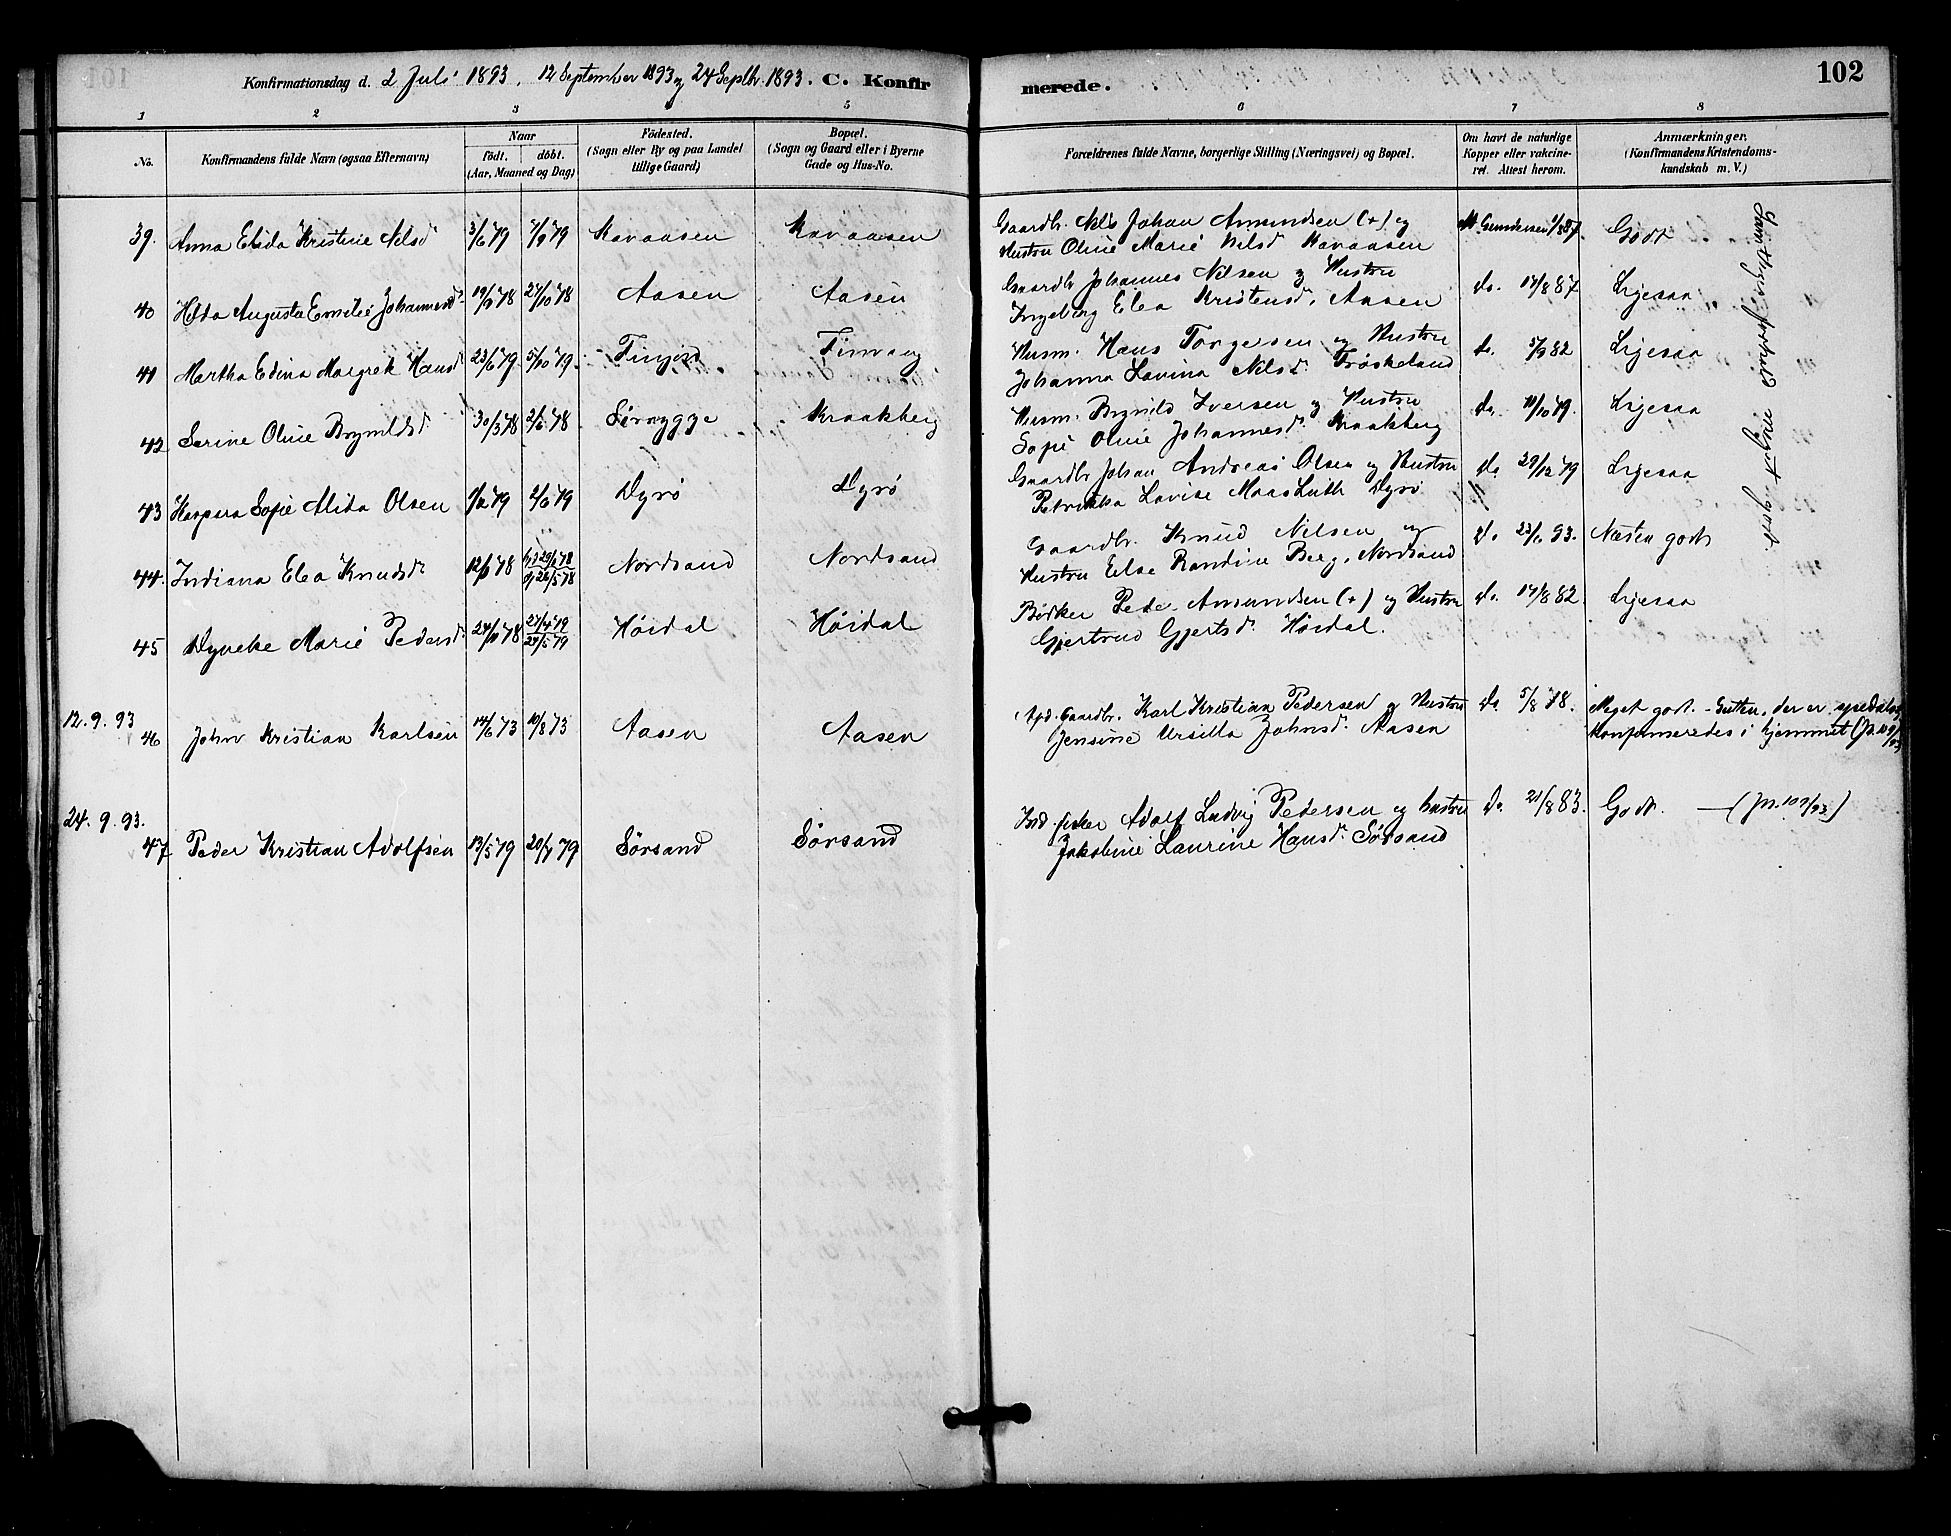 Konfirmationsdag d. 2 Juli 1893, 12 September 1893 og 24 Septbr. 1893. C. Konfirmerede. 102
1 2 3 5 6 7 8
No. Konfirmandens fulde Navn (ogsaa Efternavn) Naar födt. döbt. (Aar, Maaned og Dag) Födested. (Sogn eller By og paa Landet tillige Gaard) Bopæl. (Sogn og Gaard eller i Byerne Gade og Hus-No. Forældrenes fulde Navne, borgerlige Stilling (Næringsvei) og Bopæl. Om havt de naturlige Kopper eller vakcineret. Attest herom. Anmærkninger. (Konfirmandens Kristendomskundskab m. V.)
39. Anna Elida Kristine Nilsd 3/6 79 7/9 79 Kavaasen Kavaasen Gaardbr. Nils Johan Amundsen (+) og
Hustru Oline Marie Nilsd Kavaasen Gundersen 1/8 87 Godt
40 Hilda Augusta Emilie Johannesd. 19/9 78 27/10 78 Aasen Aasen Gaardbr Johannes Nilsen og Hustru
Ingeborg Elea Kristensd. Aasen do. 17/8 87 Likesaa
41 Martha Edina Margrete Hansd 23/6 79. 5/10 79. Finvaag Husm. Hans Torgersen og Hustru
Johanna Lavina Nilsd. Fröskeland do. 5/9 82 Likesaa
42 Serine Oline Brynildsd 30/3 78 2/6 78 Kraakberg Husm. Brynild Iversen og Hustru
Sofie Oline Johannesd. Kraakberg do. 11/10 79. Likesaa
43 Kaspera Sofie Alida Olsen 1/2 79 2/6 79 Dyrö Dyrö Gaardbr Johan Andreas Olsen og Hustru
Petrikka Lovise Maas Luth Dyrö do 29/12 79 Likesaa
44. Indiana Elea Knudsd. 78 Nordsand Nordsand Gaardbr. Knud Nilsen og
Hustru Else Randine Berg, Nordsand do 93. Næsten godt
45 Dyveke Marie Pedersd. 78 27/4 79 27/5 79 Höidal Höidal Bödker Peder Amundsen (+) og Hustru
Gjertrud Gjertsd. Höidal. do. 17/8 82. Likesaa
Samtlige forhold meget godt
12.9.93
46 John Kristian Karlsen 14/6 73 10/8 73 Aasen Aasen Gaardbr. Karl Kristian Pedersen og Hustru
Jensine Ursilla Johnsd. Aasen do 5/8 78. Meget godt. - Gutten, der er spedalsk,
konfirmeredes i hjemmet
24.9.93.
47 Peder Kristian Adolfsen 13/5 79 20/7 79 Sörsand Sörsand Ind. fisker Adolf Ludvig Pedersen og hustru
Jakobine Laurine Hansd. Sörsand do 21/8 83. Godt. —